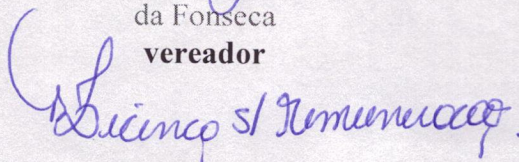 da Fonseca
vereador
Licença s/ Remuneração.